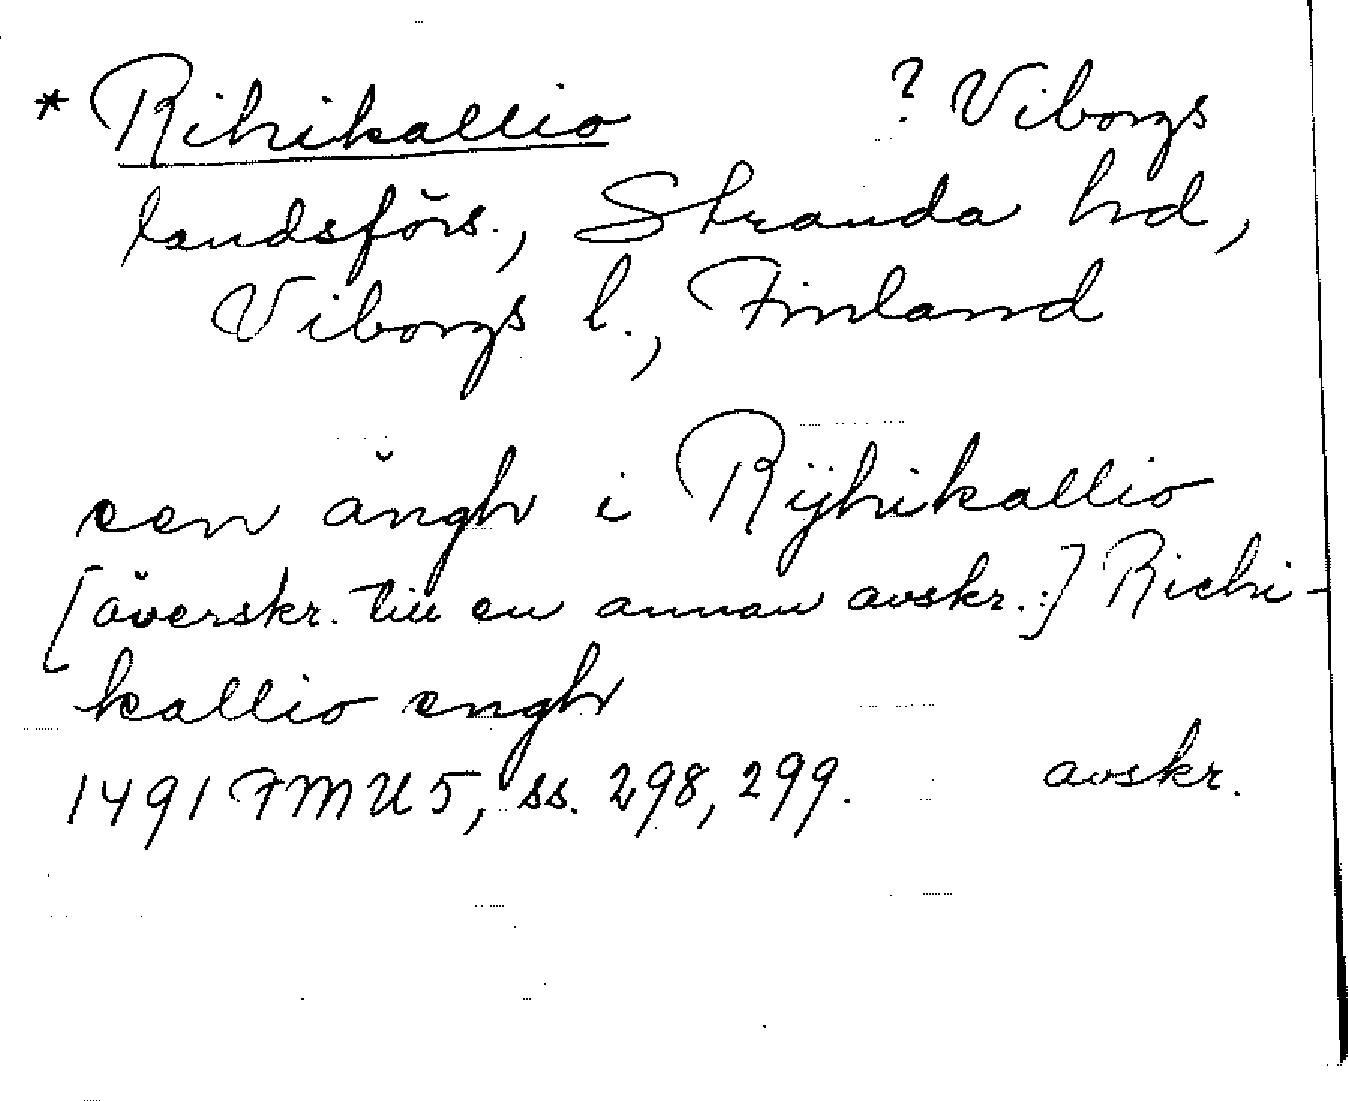 * Rihikallio ? Viborgs
landsförs., Stranda hd,
Viborgs l., Finland
een ängh i Rÿhikallio
[överskr. till en annan avskr.:] Richi-
kallio engh
1491 FMU 5, ss. 298, 299. avskr.